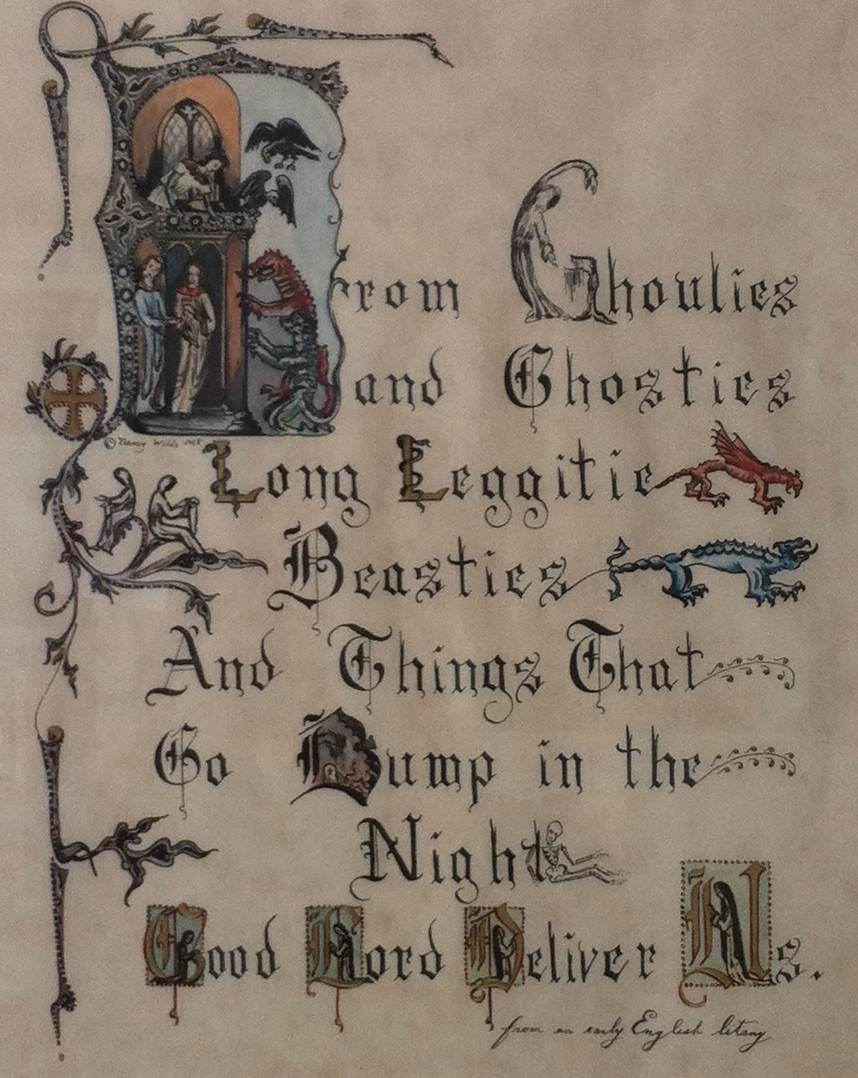 From Ghoulies
and Ghosties
© Nancy
Long Leggitie
Beasties
And Things That
Go Bump in the
Night
Good Lord Deliver Us.
from an early English litany